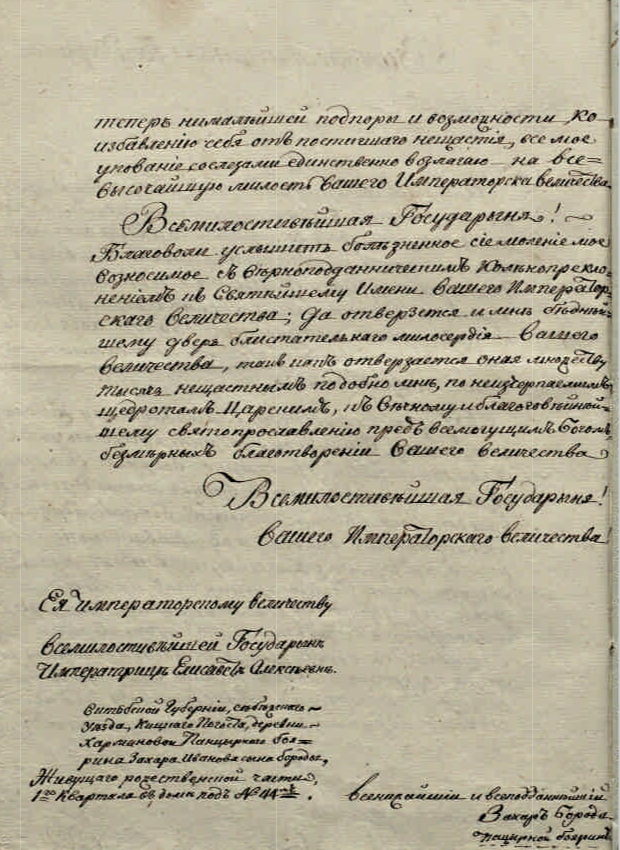 теперь нималѣйшей подпоры и возможности ко
избавленію себя отъ постигшаго нещастія, все мое
упованіе сослезами единственно возлагаю на все=
высочайшую милость Вашего Императорска величества.
Всемилостивѣйшая Государыня!
Благоволи услышать болѣзненное сіе моленіе мое
возносимое съ вѣрноподданническимъ колѣнопрекло-
неніемъ къ Святѣйшему Имени Вашего Император-
скаго Величества; да отверзется и мнѣ бѣднѣй-
шему дверь блистательнаго милосердія Вашего
величества, такъ какъ отверзается оная множеству
тысячь нещастнымъ подобно мнѣ, по неизчерпаемымъ
щедротамъ Царскимъ, къ вѣчному и благоговѣйнѣй-
шему святопрославленію предъ всемогущимъ Богомъ,
безмѣрныхъ благотвореніи Вашего величества
Всемилостивѣйшая Государыня!
Вашего Императорскаго величества!
Ея императорскому величеству
всемилостивѣйшей Государынѣ
Императрицѣ Елисаветѣ Алексѣевнѣ.
Витебской Губерніи, себѣжскаго
Уѣзда, Погоста, деревни
Панцырнаго боя=
рина Захара Иванова сына бороды,
Живущаго рожественской части,
1го Квартала въ дома подъ № 44мъ.
всенижайшій и всеподданнѣйшій
Захаръ Борода
панцирной бояринъ